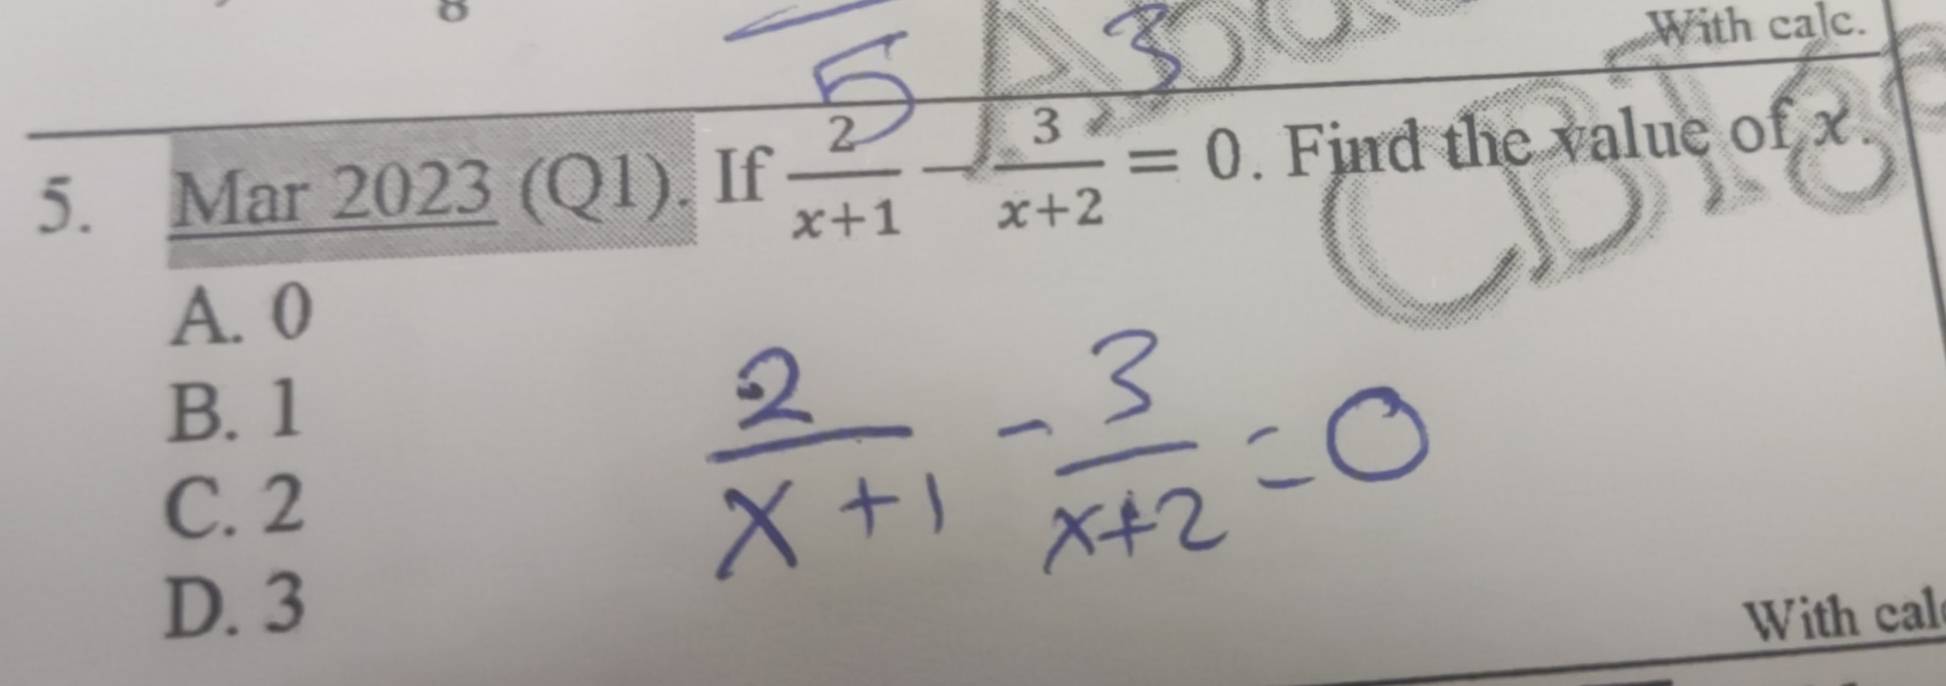 8
With calc.
5 3
5. Mar 2023 (Q1). If 2/(x+1) − 3/(x+2) = 0. Find the value of x.
A. 0
B. 1
C. 2
D. 3
2/(x+1) - 3/(x+2) = 0
With cal